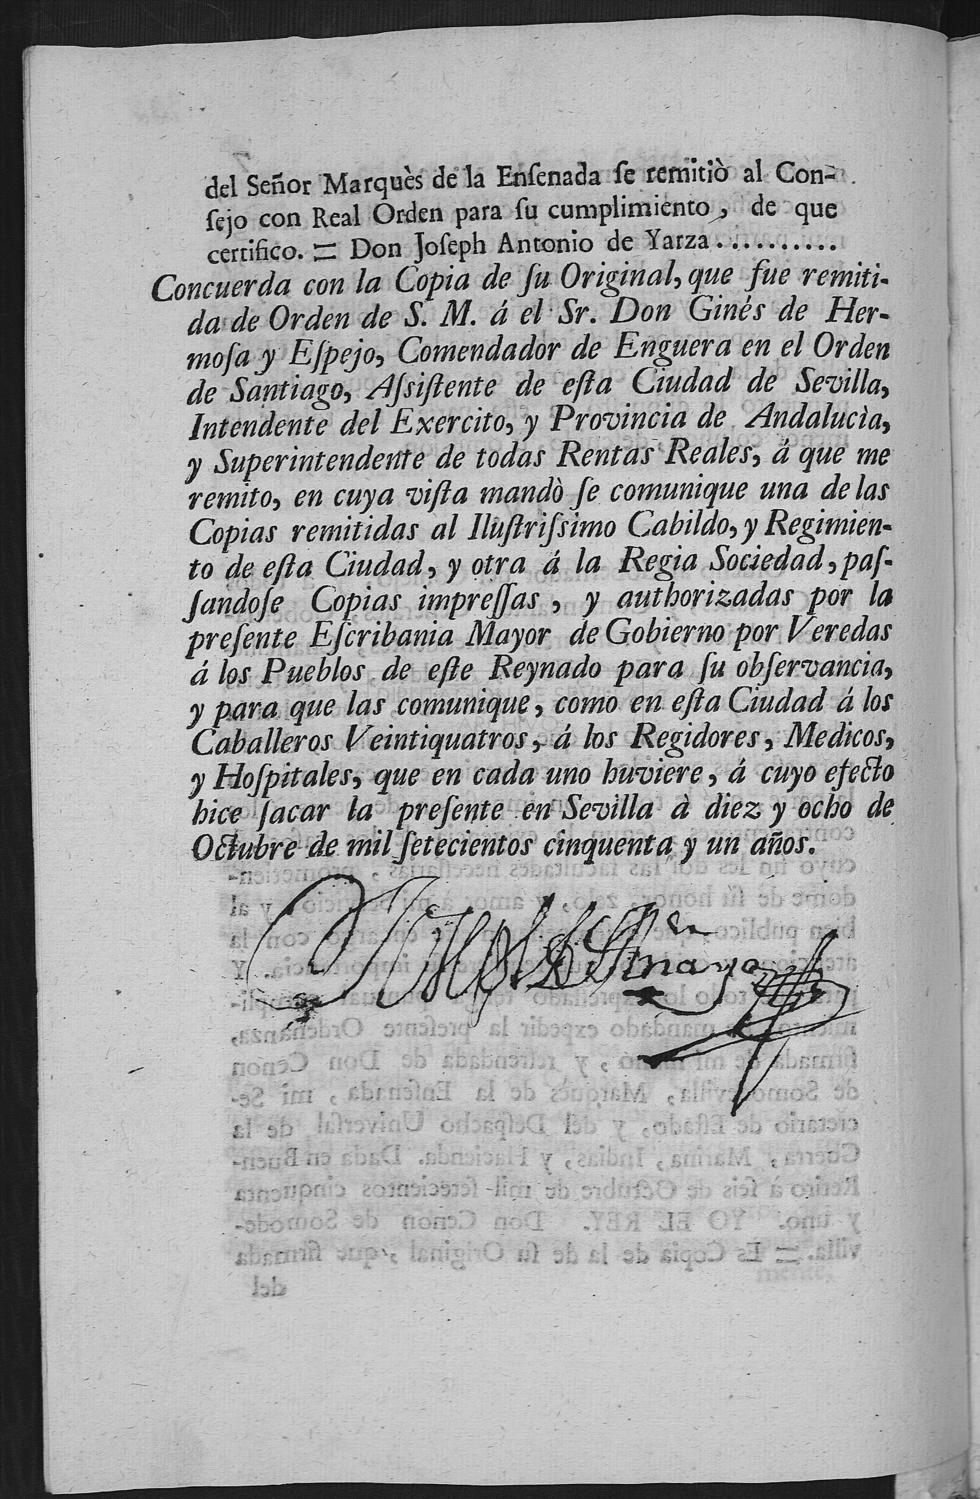 del Señor Marquès de la Enſenada ſe remitiò al Con-
ſejo con Real Orden para ſu cumplimiento, de que
certifico. = Don Joſeph Antonio de Yarza..........
Concuerda con la Copia de ſu Original, que fue remiti-
da de Orden de S. M. á el Sr. Don Ginés de Her-
moſa y Eſpejo, Comendador de Enguera en el Orden
de Santiago, Aſsiſtente de eſta Ciudad de Sevilla,
Intendente del Exercito, y Provincia de Andalucìa,
y Superintendente de todas Rentas Reales, á que me
remito, en cuya viſta mandò ſe comunique una de las
Copias remitidas al Iluſtriſsimo Cabildo, y Regimien-
to de eſta Ciudad, y otra á la Regia Sociedad, paſ-
ſandoſe Copias impreſſas, y authorizadas por la
preſente Eſcribania Mayor de Gobierno por Veredas
á los Pueblos de eſte Reynado para ſu obſervancia,
y para que las comunique, como en eſta Ciudad á los
Caballeros Veintiquatros, á los Regidores, Medicos,
y Hoſpitales, que en cada uno huviere, á cuyo efecto
hice ſacar la preſente en Sevilla à diez y ocho de
Octubre de mil ſetecientos cinquenta y un años.